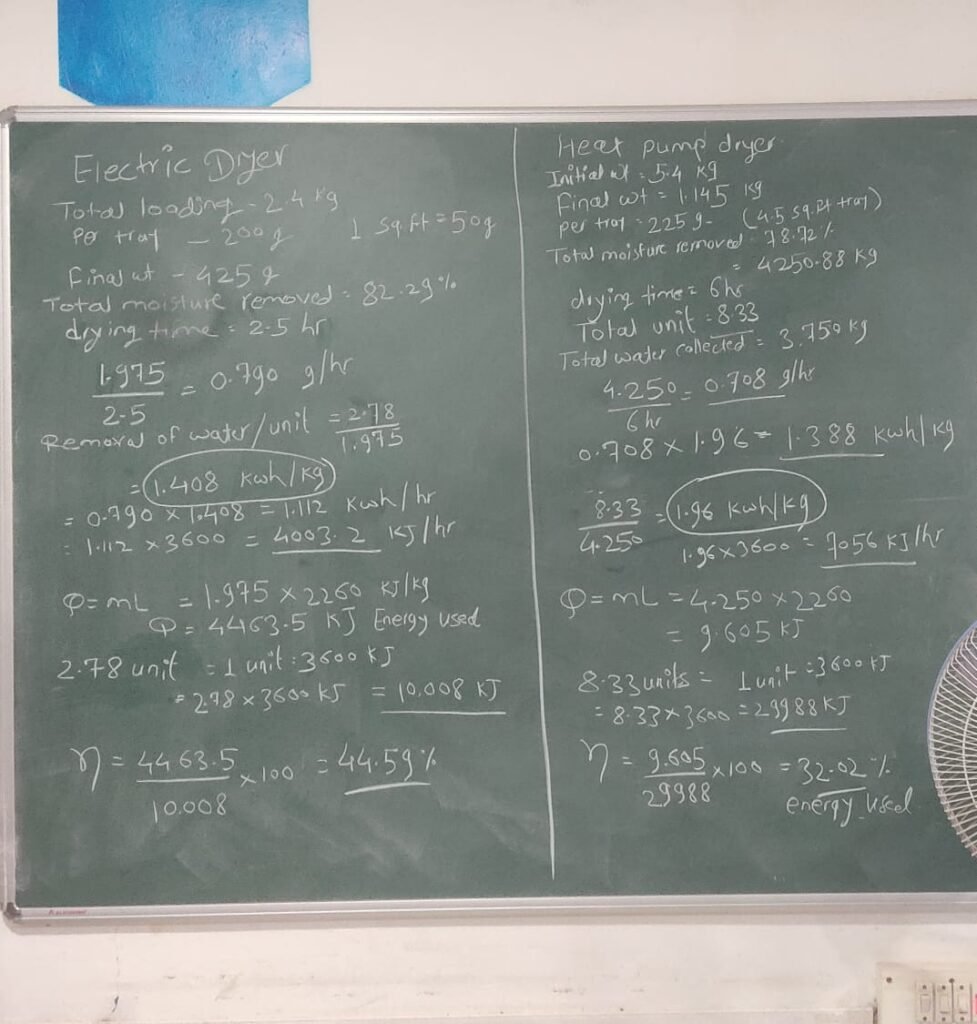 Electric Dryer
Total loading - 2.4 kg
Per tray - 200 g
1 sq.ft = 50g
Final wt - 425 g
Total moisture removed = 82.29%
drying time = 2.5 hr
1.975 / 2.5 = 0.790 g/hr
Removal of water/unit = 2.78 / 1.975
= 1.408 kwh/kg
= 0.790 × 1.408 = 1.112 kwh/hr
= 1.112 × 3600 = 4003.2 KJ/hr
Q = mL = 1.975 × 2260 KJ/kg
Q = 4463.5 KJ Energy used
2.78 unit = 1 unit : 3600 KJ
= 2.78 × 3600 KJ = 10.008 KJ
η = 4463.5 / 10.008 × 100 = 44.59%
Heat pump dryer
Initial wt = 5.4 kg
Final wt = 1.145 kg
per tray = 225 g - (4.5 sq.ft tray)
Total moisture removed - 78.72%
= 4250.88 kg
drying time = 6 hs
Total unit = 8.33
Total water collected = 3.750 kg
4.250 / 6 hr = 0.708 g/hr
0.708 × 1.96 = 1.388 kwh/kg
8.33 / 4.250 = 1.96 kwh/kg
1.96 × 3600 = 7056 KJ/hr
Q = mL = 4.250 × 2260
= 9.605 KJ
8.33 units = 1 unit = 3600 KJ
= 8.33 × 3600 = 29988 KJ
η = 9.605 / 29988 × 100 = 32.02%
energy used